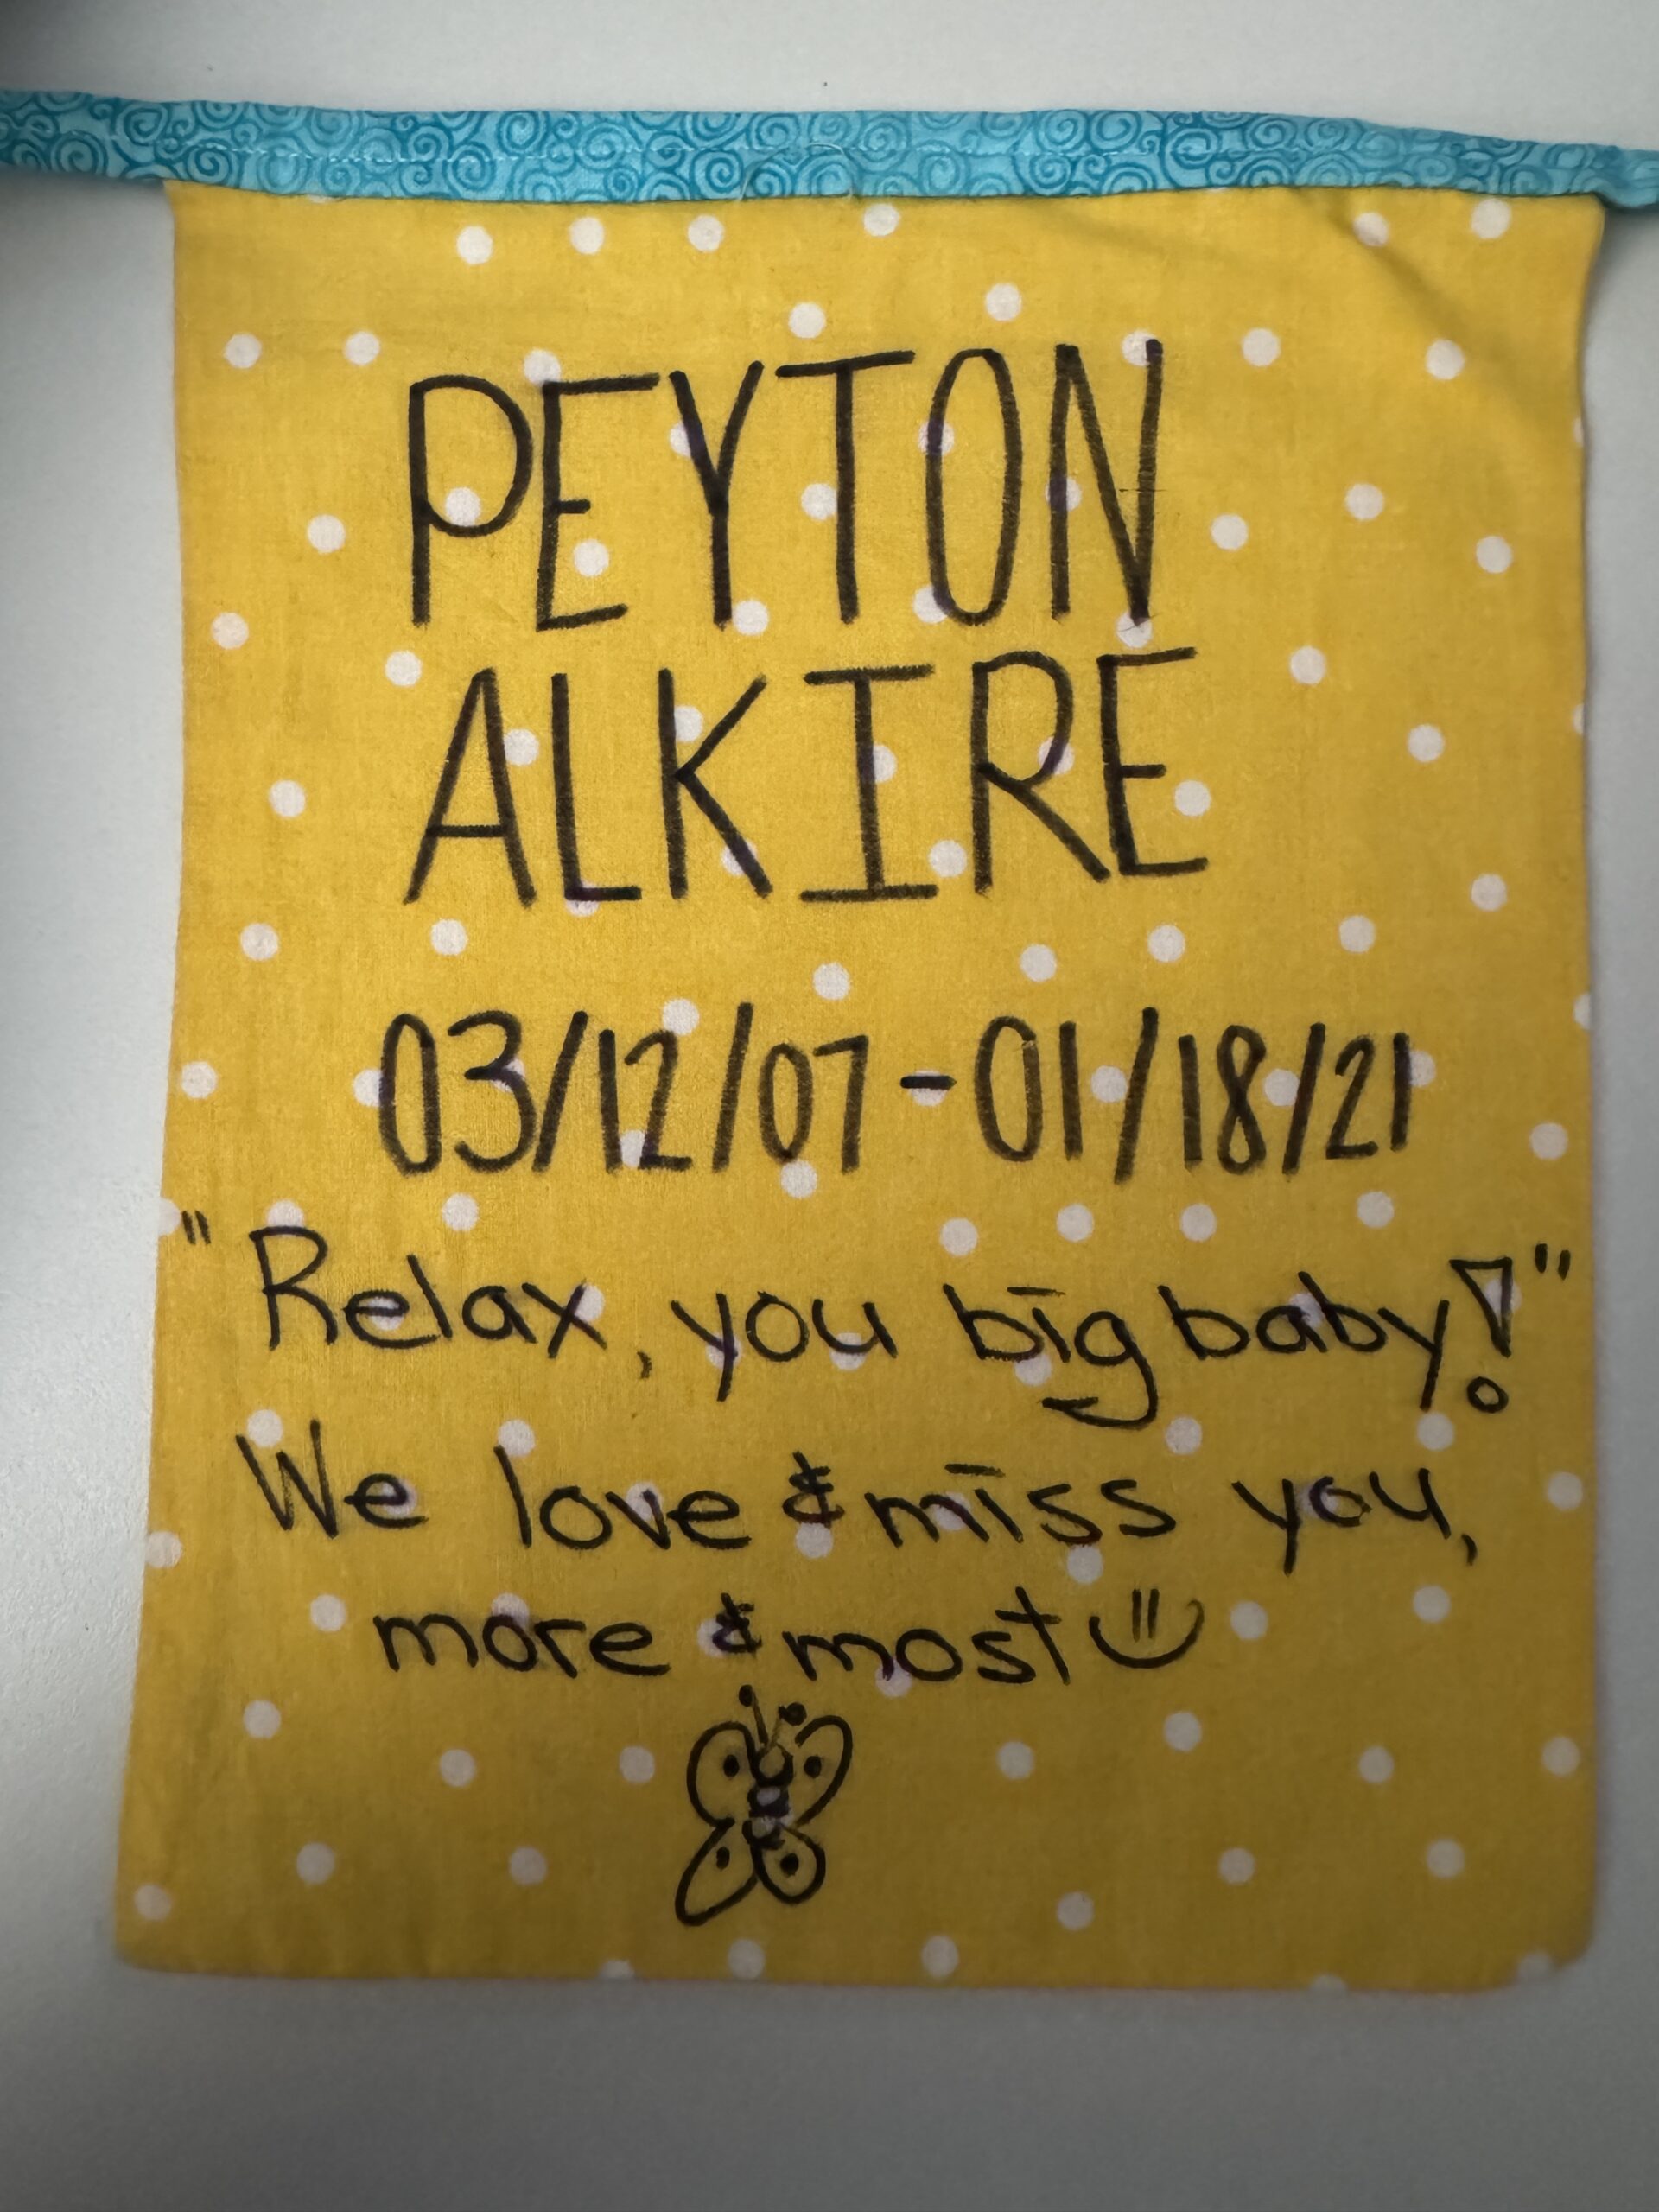 PEYTON
ALKIRE
03/12/07-01/18/21
"Relax, you big baby!"
We love & miss you,
more & most